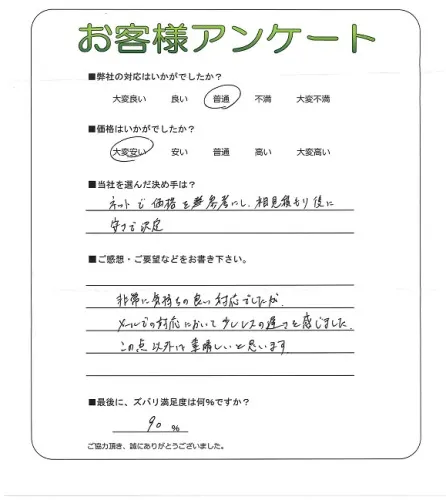 お客様アンケート
■弊社の対応はいかがでしたか？
大変良い 良い 普通 不満 大変不満
■価格はいかがでしたか？
大変安い 安い 普通 高い 大変高い
■当社を選んだ決め手は？
ネットで価格を参考にし、相見積もり後に
決定
■ご感想・ご要望などをお書き下さい。
非常に気持ちの良い対応でしたが、
メールでの対応において少しレスの遅さを感じました。
この点以外は素晴しいと思います
■最後に、ズバリ満足度は何％ですか？
90 ％
ご協力頂き、誠にありがとうございました。